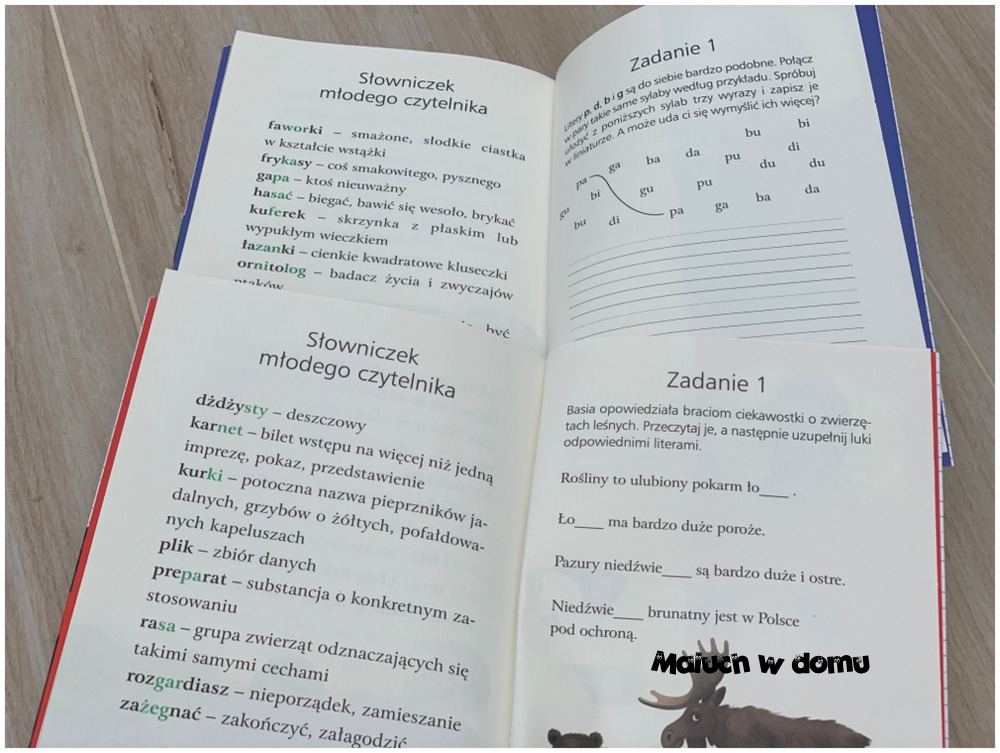 Słowniczek
młodego czytelnika
faworki – smażone, słodkie ciastka
w kształcie wstążki
frykasy – coś smakowitego, pysznego
gapa – ktoś nieuważny
hasać – biegać, bawić się wesoło, brykać
kuferek – skrzynka z płaskim lub
wypukłym wieczkiem
łazanki – cienkie kwadratowe kluseczki
ornitolog – badacz życia i zwyczajów
ptaków
być
Zadanie 1
Litery p, d, b i g są do siebie bardzo podobne. Połącz
w pary takie same sylaby według przykładu. Spróbuj
ułożyć z poniższych sylab trzy wyrazy i zapisz je
w liniaturze. A może uda ci się wymyślić ich więcej?
bu bi
pa ga ba da pu di
du du
gu bi gu pu
bu di pa ga ba da
Słowniczek
młodego czytelnika
dżdżysty – deszczowy
karnet – bilet wstępu na więcej niż jedną
imprezę, pokaz, przedstawienie
kurki – potoczna nazwa pieprzników ja-
dalnych, grzybów o żółtych, pofałdowa-
nych kapeluszach
plik – zbiór danych
preparat – substancja o konkretnym za-
stosowaniu
rasa – grupa zwierząt odznaczających się
takimi samymi cechami
rozgardiasz – nieporządek, zamieszanie
zażegnać – zakończyć, załagodzić
Zadanie 1
Basia opowiedziała braciom ciekawostki o zwierzę-
tach leśnych. Przeczytaj je, a następnie uzupełnij luki
odpowiednimi literami.
Rośliny to ulubiony pokarm ło____ .
Ło____ ma bardzo duże poroże.
Pazury niedźwie____ są bardzo duże i ostre.
Niedźwie____ brunatny jest w Polsce
pod ochroną.
Maluch w domu